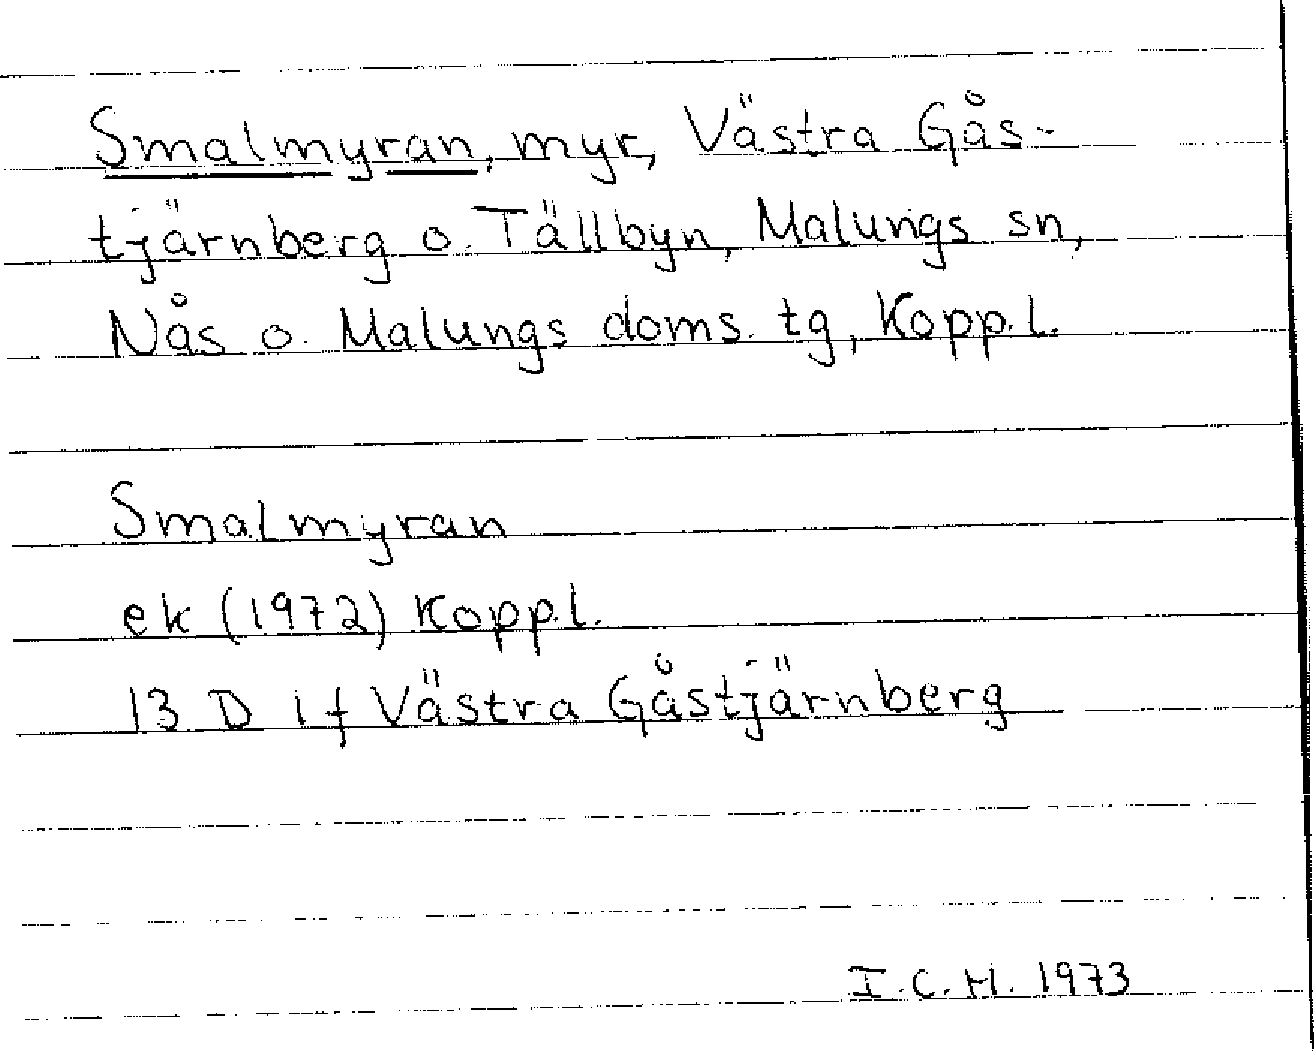 Smalmyran, myr, Västra Gås-
tjärnberg o. Tällbyn, Malungs sn,
Nås o. Malungs doms. tg, Kopp.l.
Smalmyran
ek (1972) Kopp.l.
13 D if Västra Gåstjärnberg
I.C.H. 1973